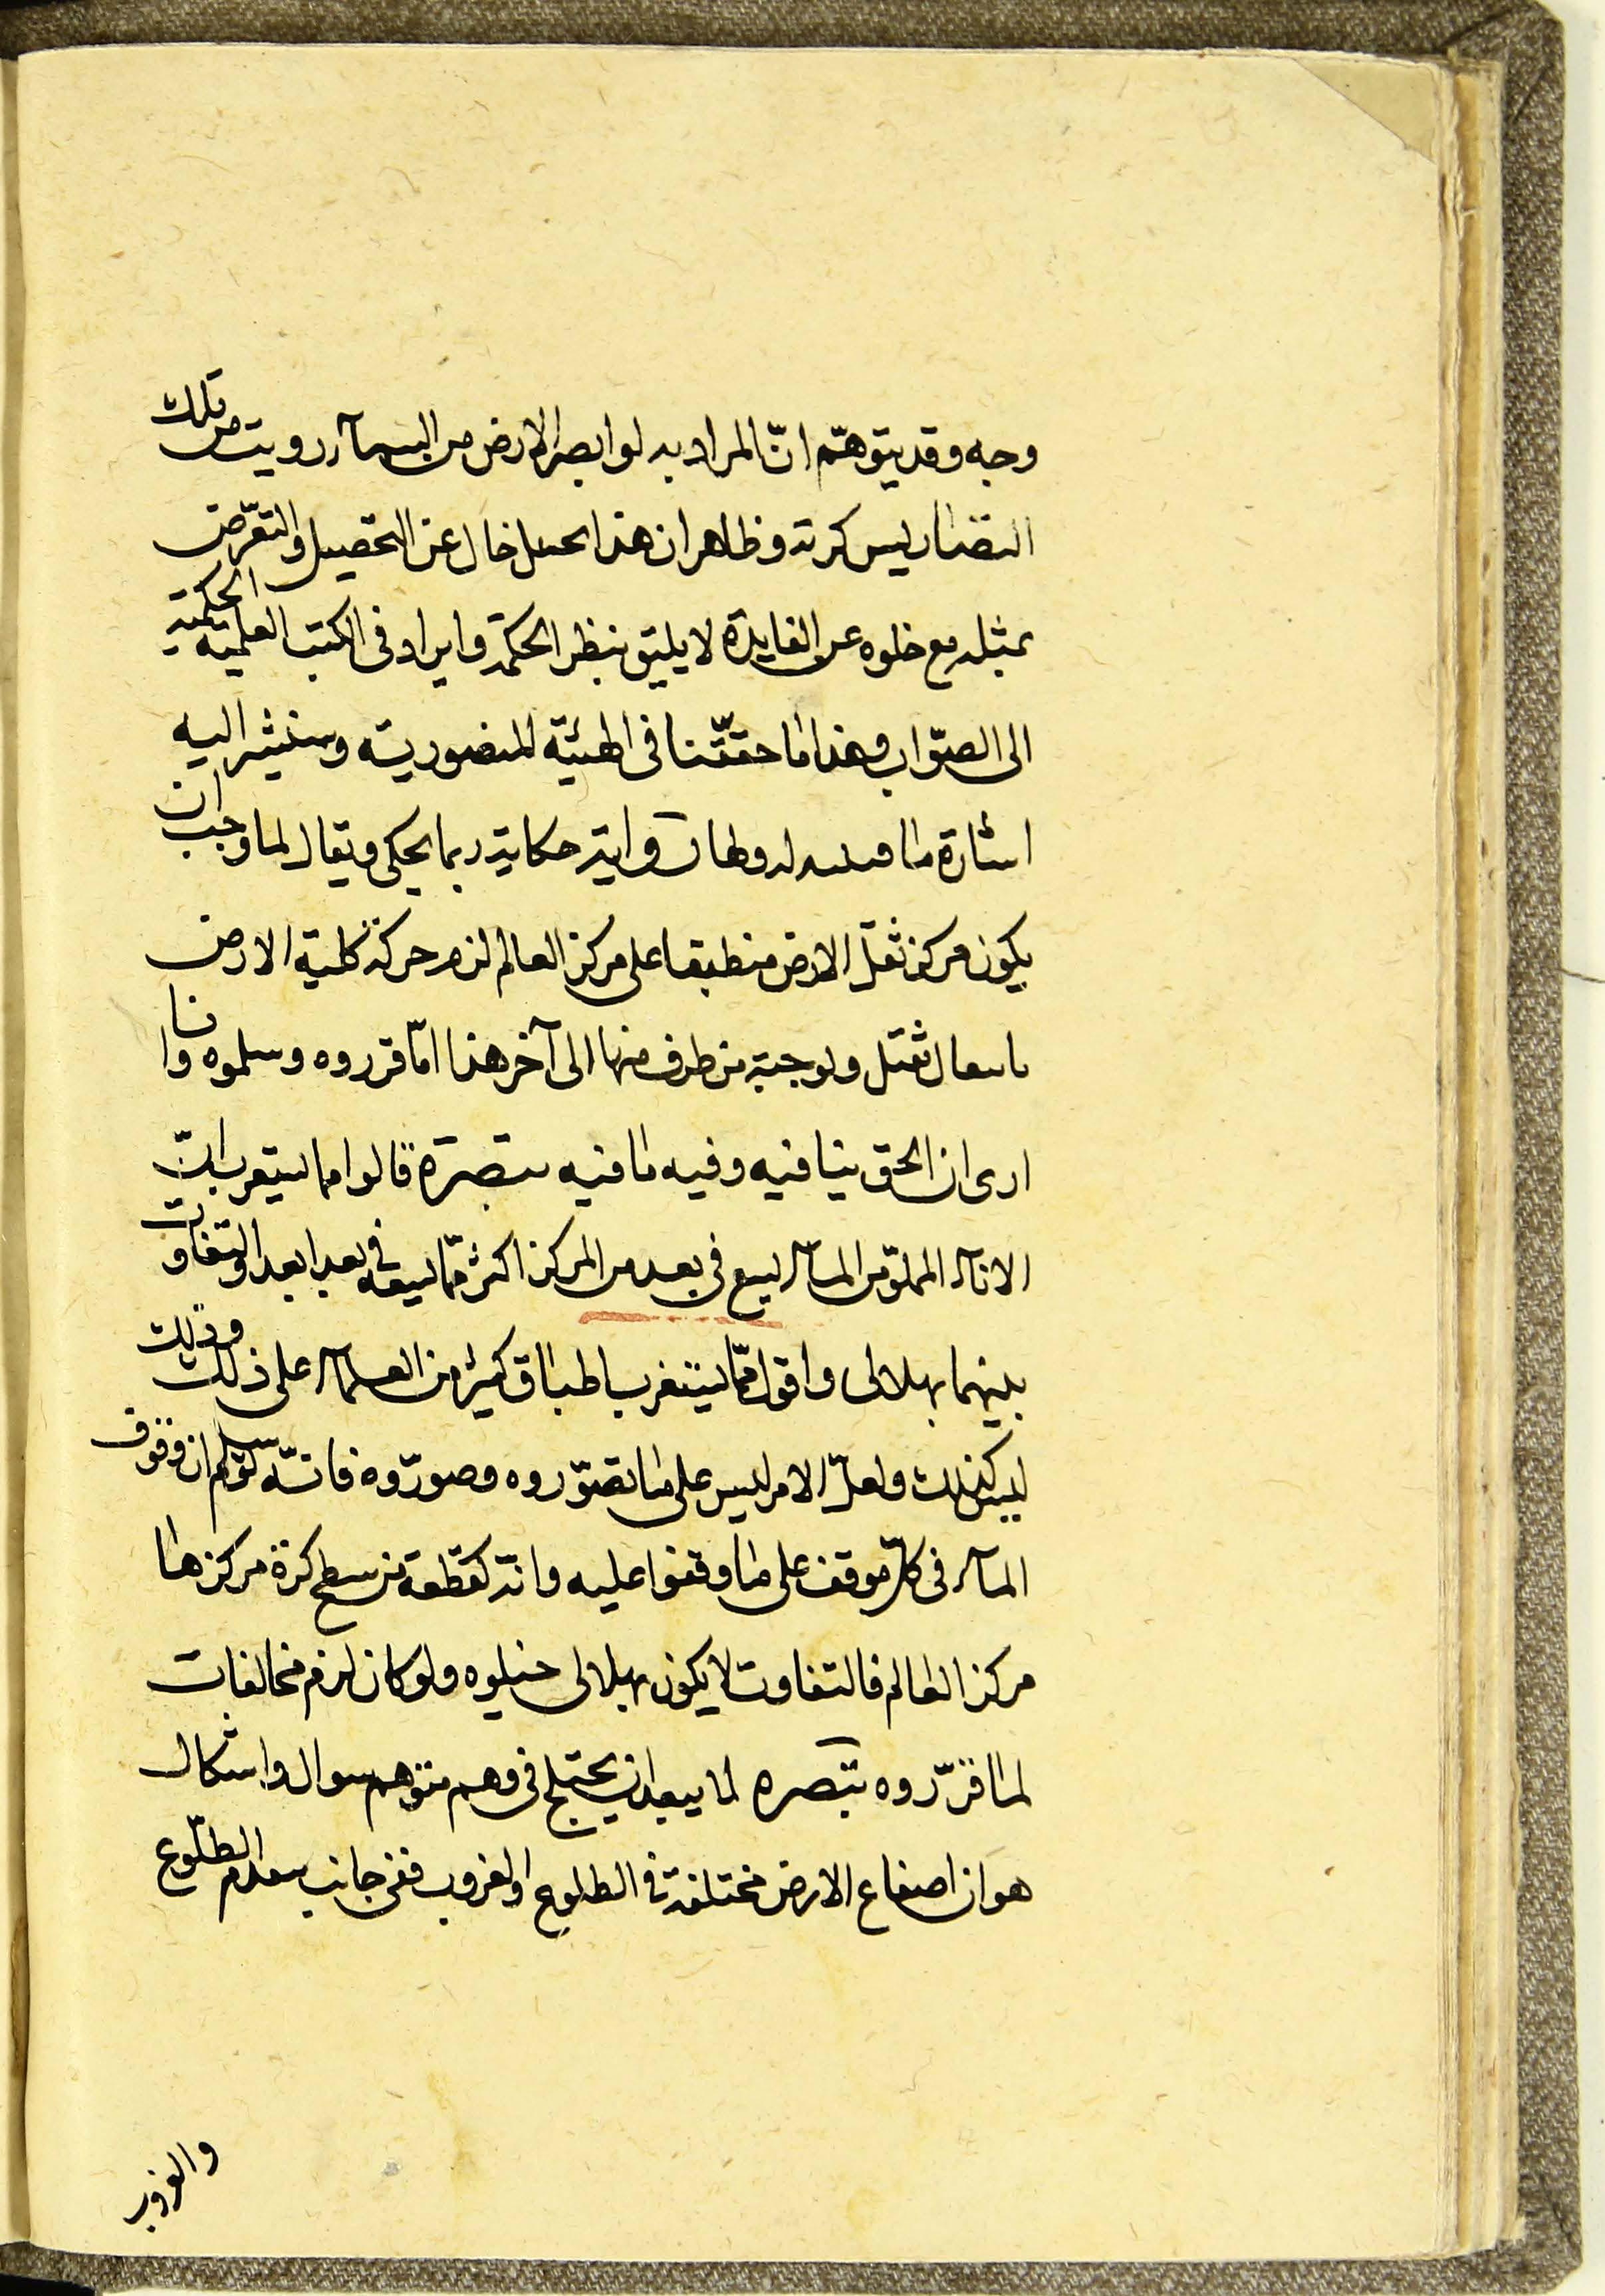 وجه وقد يتوهّم انّ المراد به لو ابصر الارض من السمآء رويت من تلك
التضار ليس كرته وظاهر ان هذا الحمل خال عن التحصيل والتعرّض
بمثله مع خلوه عن الفايدة لا يليق بنظر الحكمة وايراد فى الكتب العلميه الحكمية
الى الصوّاب وهذا ما حققّنا فى الهيئة المنصوريه وسنشير اليه
اشارة ما حكاية ربما يحكى ويقال لما وجب ان
يكون مركز ثقل الارض منطبقا على مركز العالم لزم حركة كلية الارض
ثقل ولو جبة من طرف منها الى آخر هذا امّا قرروه وسلموه وانا
ارى ان الحق ينافيه وفيه ما فيه تبصرة قالوا مما يستغرب انّ
الانآء المملوّ من المآء يسع فى بعد من المركز اكثر ممّا يسعه فى بعد ابعد والتفاوت
بينهما بهلالى واقول ممّا يستغرب اطباق كثير من العلمآء على ذلك وذلك
ليس كذلك ولعلّ الامر ليس على ما تصوّروه وصورّوه فانّه لو سلم ان وقوف
المآء فى كلّ موقف على ما وقفوا عليه وانّه كقطعة من سطح كرة مركزها
مركز العالم فالتفاوت لا يكون بهلالى خيلوه ولو كان لزم مخالفات
لما قرّروه تبصره لما يبعد ان يختلج فى وهم متوهم سوال واشكال
هو ان اصقاع الارض مختلفة فى الطلوع والغروب ففى جانب الطلّوع
والغروب